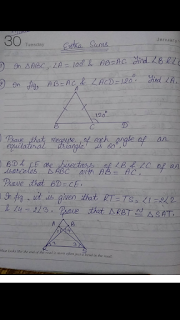 30
Extra Sums
In △ABC, ∠A = 100° & AB = AC Find ∠B & ∠C
In fig AB = AC & ∠ACD = 120° Find ∠A.
A
120°
B C D
Prove that measure of each angle of an
equilateral triangle is 60°.
BD & CE are bisectors of ∠B & ∠C of an
isosceles △ABC with AB = AC.
Prove that BD = CE.
In fig, it is given that RT = TS, ∠1 = 2∠2
& ∠4 = 2∠3. Prove that △RBT ≅ △SAT.